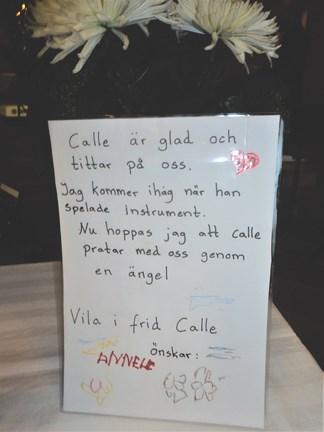 Calle är glad och
tittar på oss.
Jag kommer ihåg når han
spelade instrument.
Nu hoppas jag att calle
pratar med oss genom
en ängel
Vila i frid Calle
önskar:
ANNELE